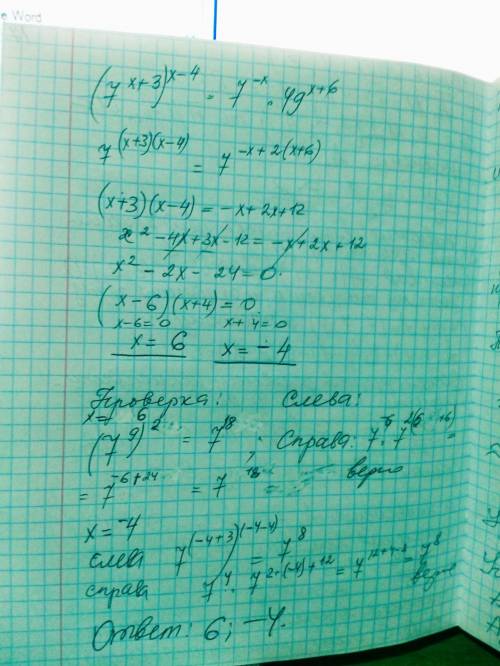 e Word
(7^(x+3))^(x-4) = 7^(-x) · 49^(x+6)
7^((x+3)(x-4)) = 7^(-x+2(x+6))
(x+3)(x-4) = -x+2x+12
x² - 4x + 3x - 12 = -x + 2x + 12
x² - 2x - 24 = 0
(x-6)(x+4) = 0
x-6=0 x+4=0
x = 6 x = -4
Проверка: Слева:
x = 6
(7^9)^2 = 7^18 ; Справа: 7^(-6) · 7^(2(6+6)) =
= 7^(-6+24) = 7^18 верно
x = -4
слева 7^((-4+3)(-4-4)) = 7^8
справа 7^4 · 7^(2·(-4)+12) = 7^(12+4-8) = 7^8 верно
Ответ: 6; -4.